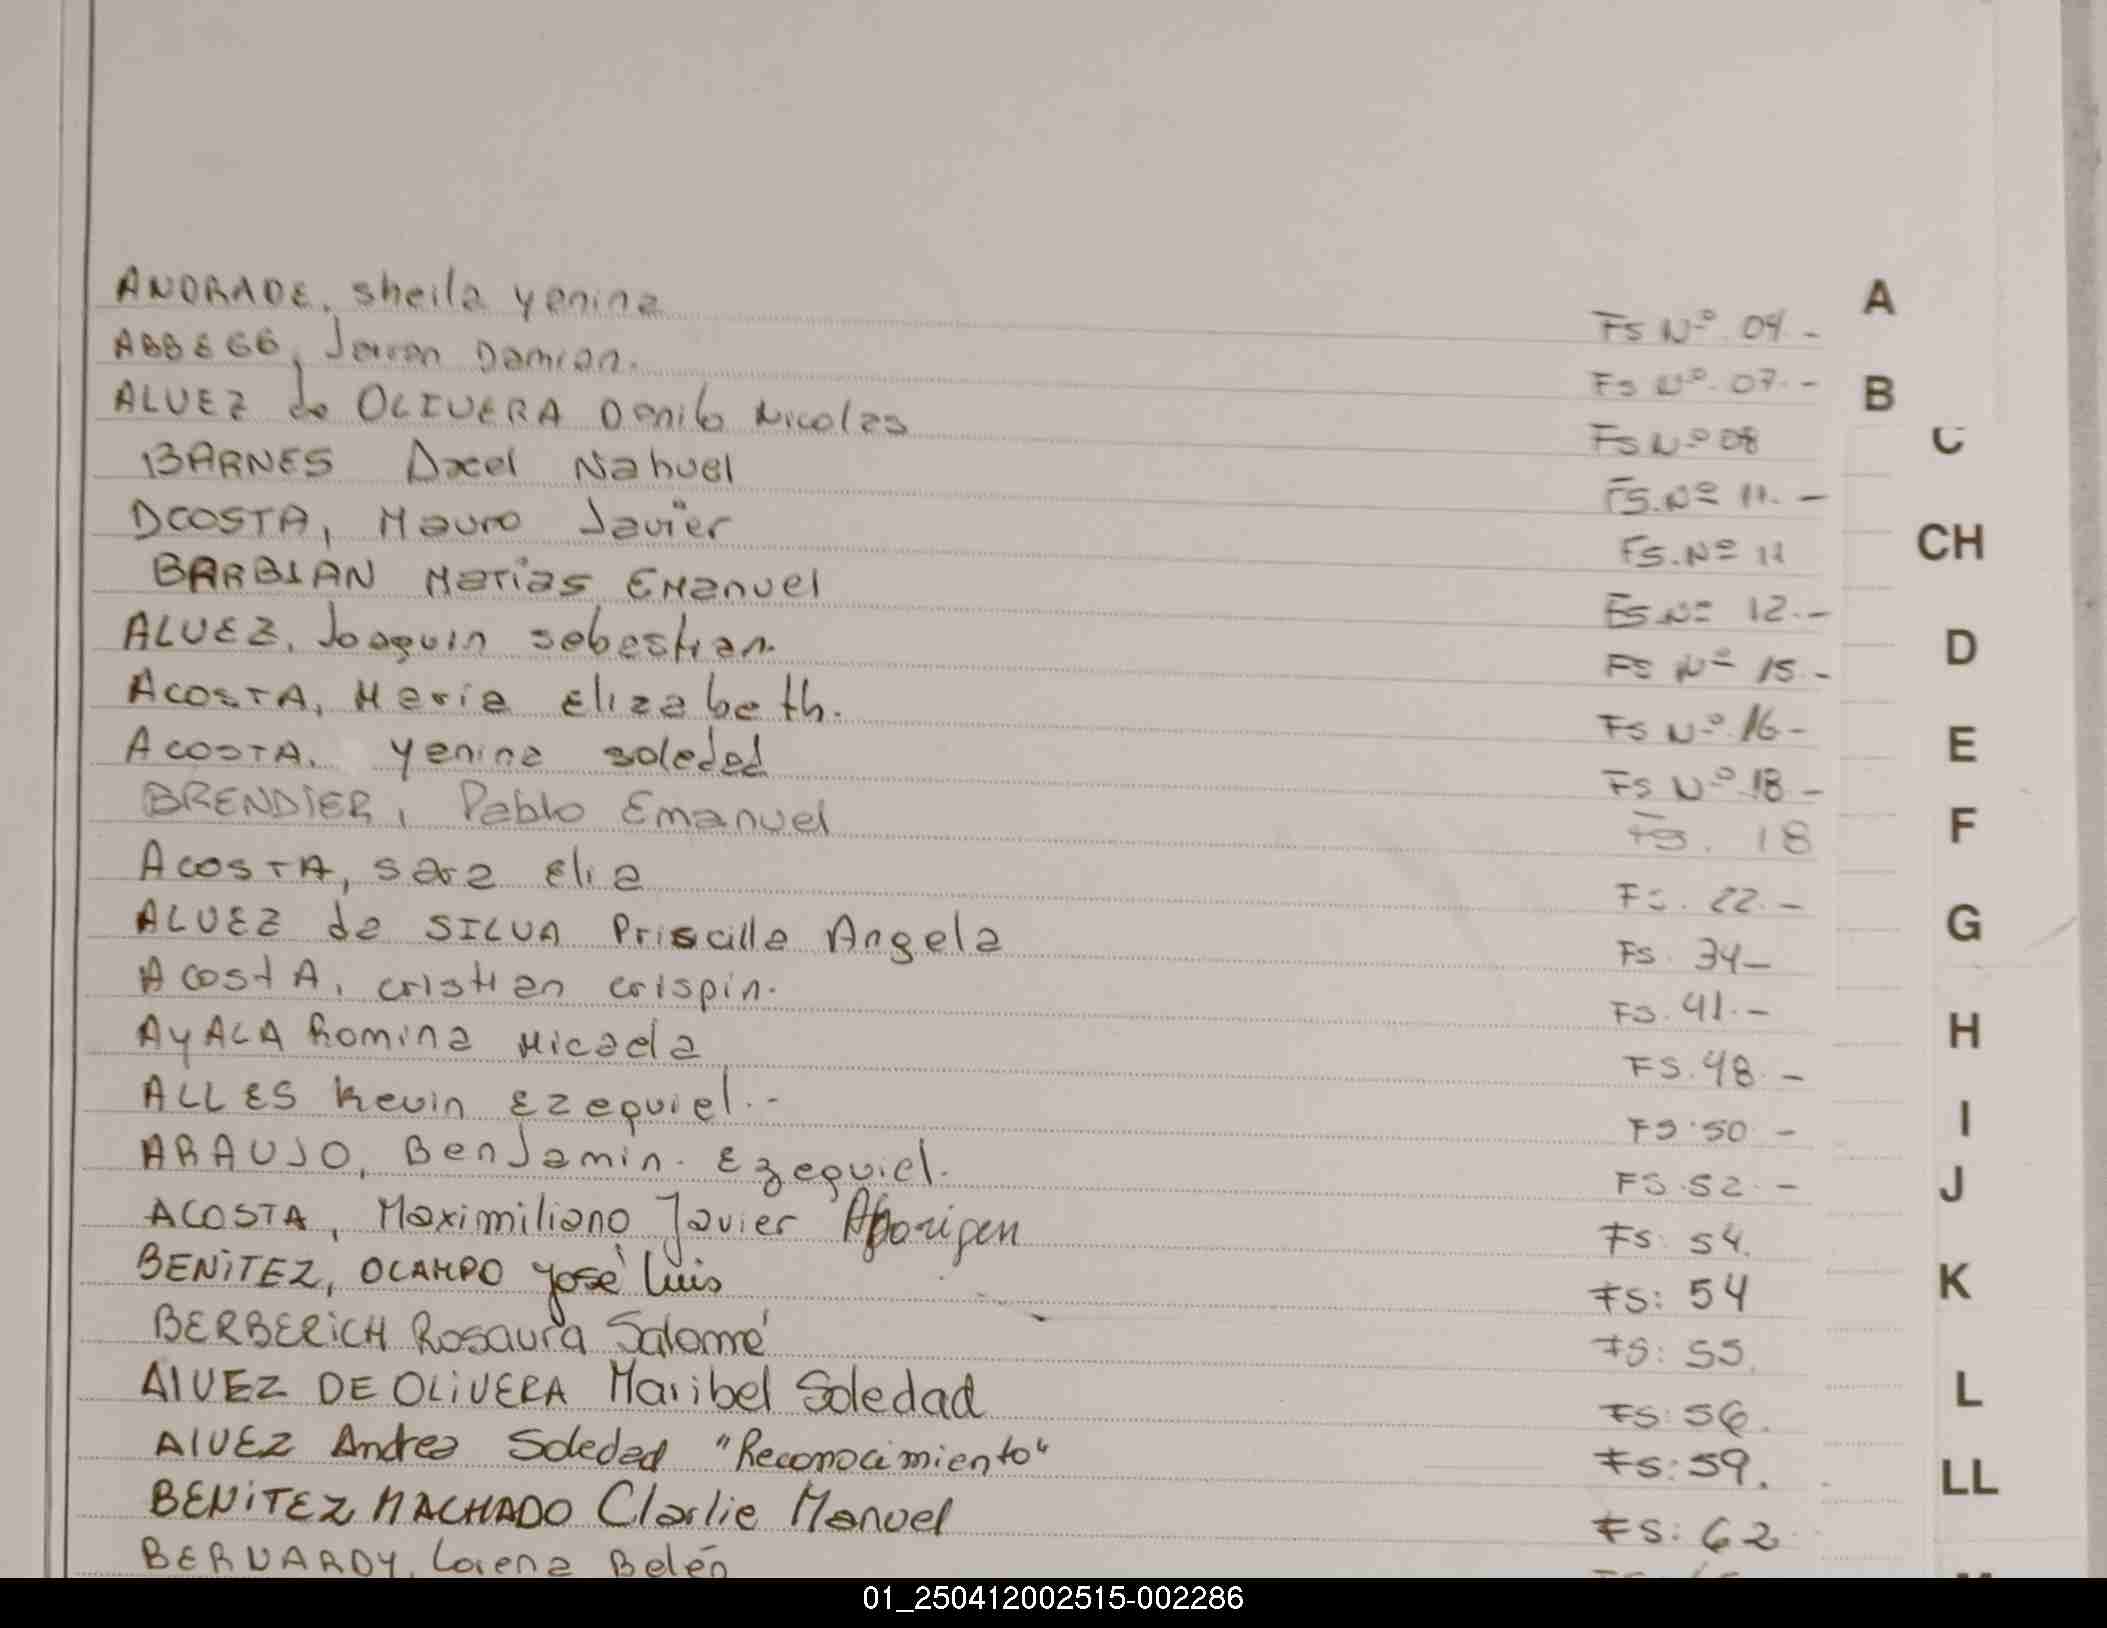 ANDRADE, Sheila Yenina Fs Nº 04.-
ABBEGG, Damian. Fs Nº 07.-
ALVEZ de OLIVERA Danilo Nicolas Fs Nº 08
BARNES Axel Nahuel FS.Nº 11.-
ACOSTA, Mauro Javier FS.Nº 11
BARBIAN Matias Emanuel FS.Nº 12.-
ALVEZ, Joaquin sebastian. Fs Nº 15.-
ACOSTA, Maria Elizabeth. Fs Nº 16-
ACOSTA, Yenina soledad Fs Nº 18-
BRENDIER, Pablo Emanuel Fs. 18
ACOSTA, sara Elia Fs. 22.-
ALVEZ da SILVA Priscilla Angela Fs. 34-
ACOSTA, cristian crispin. Fs. 41.-
AYALA Romina Micaela FS. 48.-
ALLES Kevin Ezequiel.- Fs. 50-
ARAUJO, Benjamin. Ezequiel. FS. 52.-
ACOSTA, Maximiliano Javier Aborigen Fs: 54.
BENITEZ, OCAMPO José Luis Fs: 54
BERBERICH Rosaura Salomé Fs: 55.
AlVEZ DE OLIVERA Maribel Soledad Fs: 56.
AlVEZ Andrea Soledad "Reconocimiento" Fs: 59.
BENITEZ MACHADO Charlie Manuel Fs: 62
BERNARDY, Lorena Belén
A
B
C
CH
D
E
F
G
H
I
J
K
L
LL
01_250412002515-002286